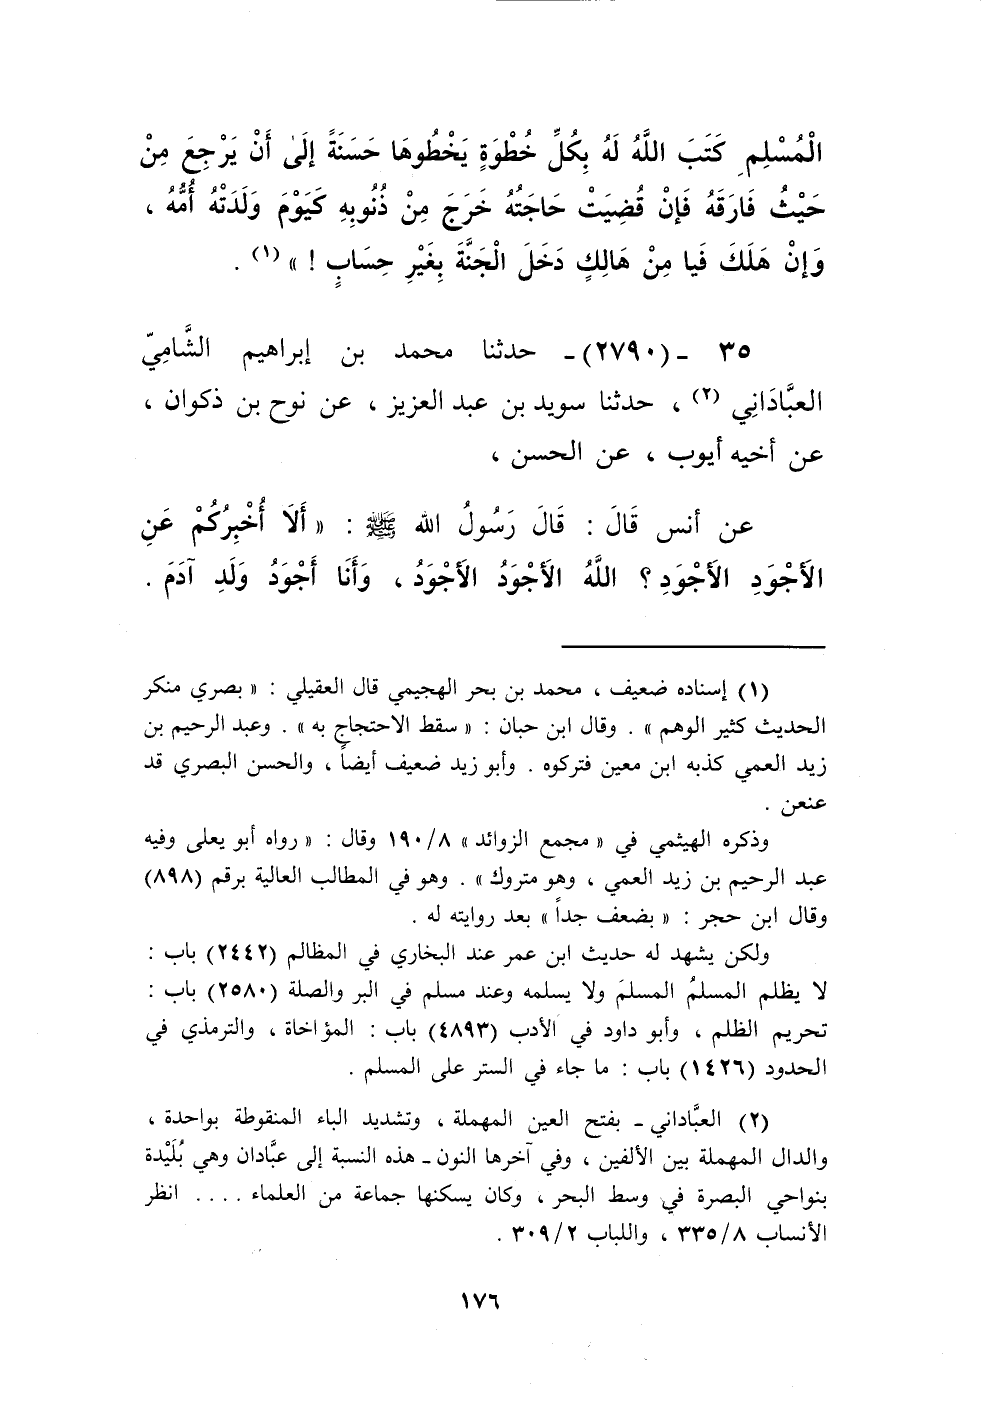 الْمُسْلِمِ كَتَبَ اللَّهُ لَهُ بِكُلِّ خُطْوَةٍ يَخْطُوهَا حَسَنَةً إِلَىٰ أَنْ يَرْجِعَ مِنْ
حَيْثُ فَارَقَهُ فَإِنْ قُضِيَتْ حَاجَتُهُ خَرَجَ مِنْ ذُنُوبِهِ كَيَوْمَ وَلَدَتْهُ أُمُّهُ ،
وَإِنْ هَلَكَ فَيا مِنْ هَالِكٍ دَخَلَ الْجَنَّةَ بِغَيْرِ حِسَابٍ ! » (١) .
٣٥ ـ (٢٧٩٠) ـ حدثنا محمد بن إبراهيم الشَّامِيّ
العبَّادَانِي (٢) ، حدثنا سويد بن عبد العزيز ، عن نوح بن ذكوان ،
عن أخيه أيوب ، عن الحسن ،
عن أنس قَالَ : قَالَ رَسُولُ الله ﷺ : « أَلَا أُخْبِرُكُمْ عَنِ
الأَجْوَدِ الأَجْوَدِ ؟ اللَّهُ الأَجْوَدُ الأَجْوَدُ ، وَأَنَا أَجْوَدُ وَلَدِ آدَمَ .
(١) إسناده ضعيف ، محمد بن بحر الهجيمي قال العقيلي : « بصري منكر
الحديث كثير الوهم » . وقال ابن حبان : « سقط الاحتجاج به » . وعبد الرحيم بن
زيد العمي كذبه ابن معين فتركوه . وأبو زيد ضعيف أيضاً ، والحسن البصري قد
عنعن .
وذكره الهيثمي في « مجمع الزوائد » ١٩٠/٨ وقال : « رواه أبو يعلى وفيه
عبد الرحيم بن زيد العمي ، وهو متروك » . وهو في المطالب العالية برقم (٨٩٨)
وقال ابن حجر : « يضعف جداً » بعد روايته له .
ولكن يشهد له حديث ابن عمر عند البخاري في المظالم (٢٤٤٢) باب :
لا يظلم المسلمُ المسلمَ ولا يسلمه وعند مسلم في البر والصلة (٢٥٨٠) باب :
تحريم الظلم ، وأبو داود في الأدب (٤٨٩٣) باب : المؤاخاة ، والترمذي في
الحدود (١٤٢٦) باب : ما جاء في الستر على المسلم .
(٢) العبَّاداني ـ بفتح العين المهملة ، وتشديد الباء المنقوطة بواحدة ،
والدال المهملة بين الألفين ، وفي آخرها النون ـ هذه النسبة إلى عبَّادان وهي بُلَيْدة
بنواحي البصرة في وسط البحر ، وكان يسكنها جماعة من العلماء .... انظر
الأنساب ٣٣٥/٨ ، واللباب ٣٠٩/٢ .
١٧٦